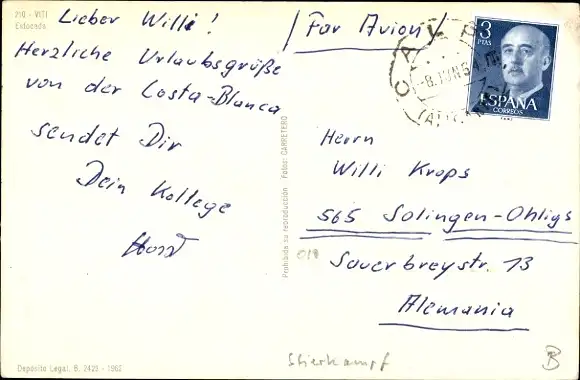 210 - VITI
Lieber Willi!
Herzliche Urlaubsgrüße
von der Costa-Blanca
sendet Dir
Dein Kollege
Horst
Depósito Legal, B. 2425 - 1962
Prohibida su reproducción Fotos: CARRETERO
(Par Avion)
CALP
-8.JUN
3
PTAS
ESPAÑA
CORREOS
Herrn
Willi Krops
565 Solingen-Ohligs
Sauerbreystr. 13
Alemania
Stierkampf
B